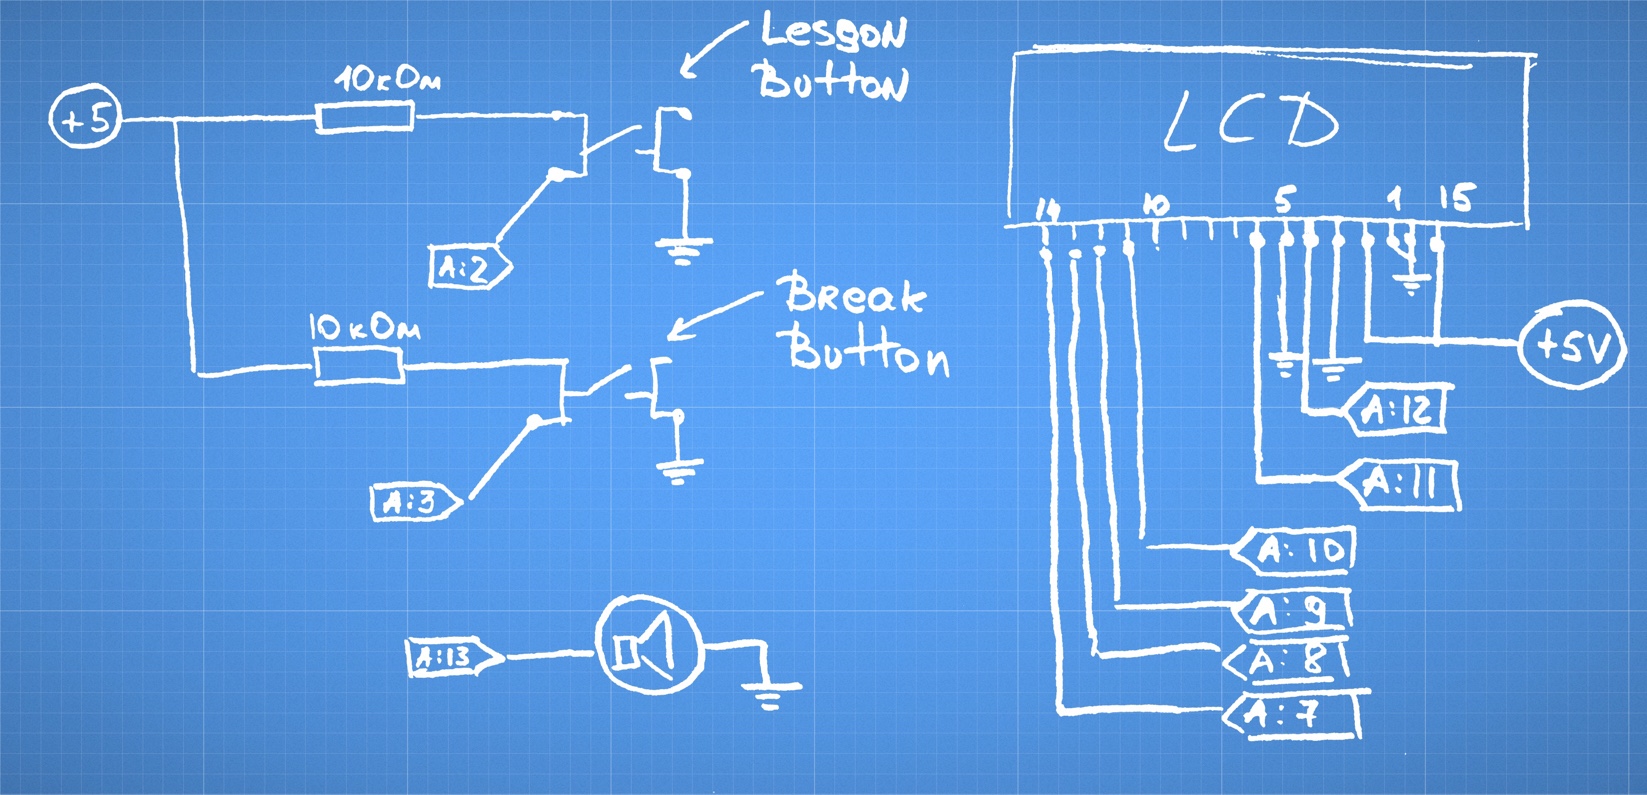 +5
10кОм
A:2
Lesson
Button
10кОм
A:3
Break
Button
A:13
LCD
14 10 5 1 15
+5V
A:12
A:11
A:10
A:9
A:8
A:7